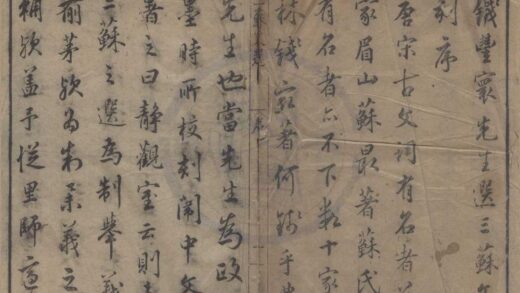 錢豐寰先生選三蘇文
刻序
唐宋古文詞有名者
家眉山蘇最著蘇氏
有名者亦不下數十家
林錢宗著何錢乎
先生也當先生為政
墨時所校刻閩中文
署之曰靜觀室云則
三蘇之選為制舉義
前茅欵為制舉義之
稱欵蓋予從里師